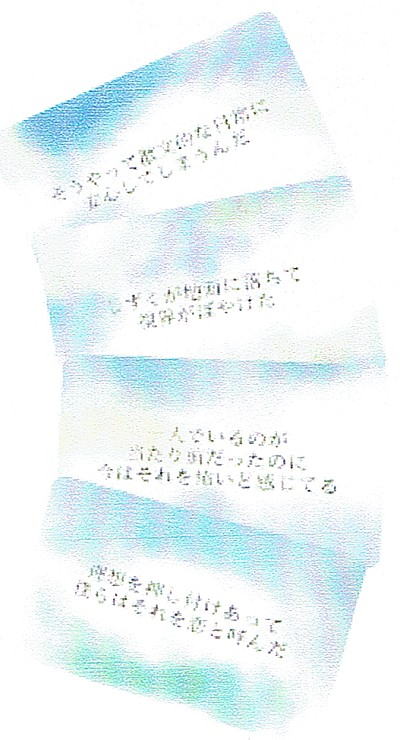 そうやって
してしまうんだ
しずくが地面に落ちて
視界がぼやけた
人でいるのが
当たり前だったのに
今はそれを痛いと感じてる
理想を押し付けあって
僕らはそれを恋と呼んだ